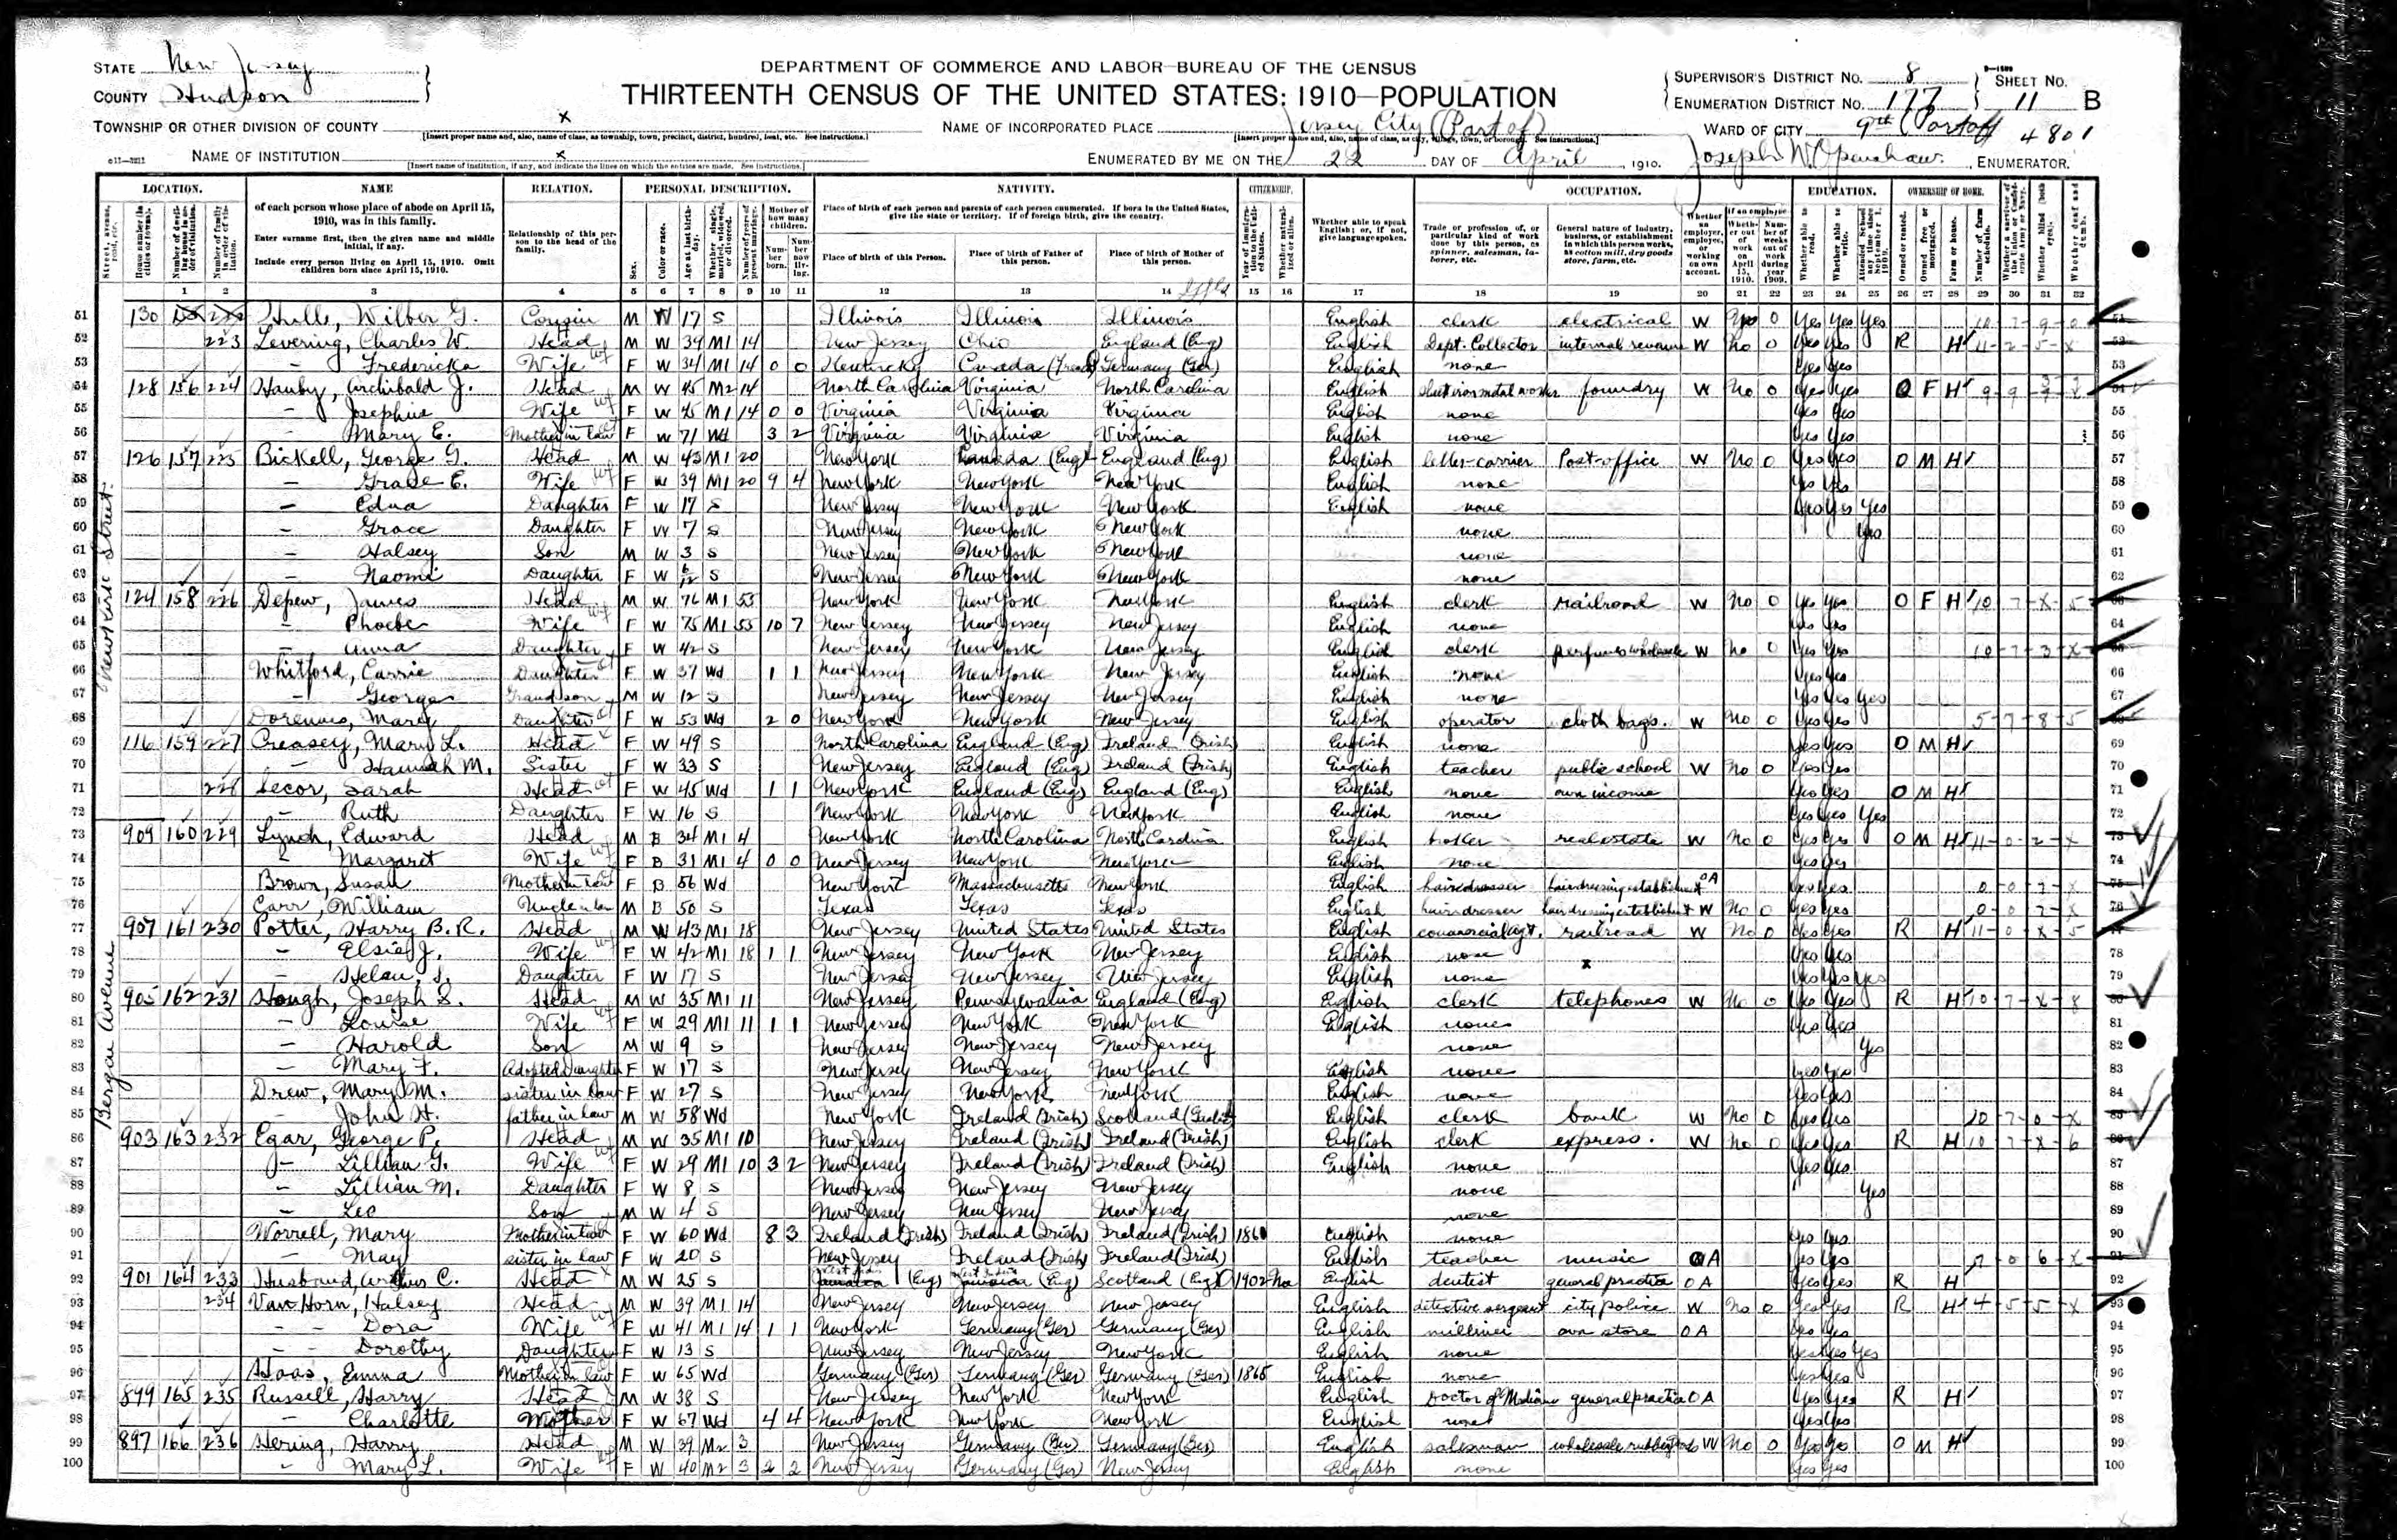 STATE New Jersey
COUNTY Hudson
TOWNSHIP OR OTHER DIVISION OF COUNTY x
[Insert proper name and, also, name of class, as township, town, precinct, district, hundred, beat, etc. See instructions.]
NAME OF INSTITUTION x
[Insert name of institution, if any, and indicate the lines on which the entries are made. See instructions.]
DEPARTMENT OF COMMERCE AND LABOR—BUREAU OF THE CENSUS
THIRTEENTH CENSUS OF THE UNITED STATES: 1910—POPULATION
NAME OF INCORPORATED PLACE Jersey City (Part of)
ENUMERATED BY ME ON THE 22 DAY OF April, 1910. Joseph W. Openshaw, ENUMERATOR.
SUPERVISOR'S DISTRICT No. 8
ENUMERATION DISTRICT No. 177
SHEET No. 11 B
WARD OF CITY 9th (Part of) 4801
LOCATION. NAME RELATION. PERSONAL DESCRIPTION. NATIVITY. CITIZENSHIP. OCCUPATION. EDUCATION. OWNERSHIP OF HOME.
of each person whose place of abode on April 15, 1910, was in this family.
Enter surname first, then the given name and middle initial, if any.
Include every person living on April 15, 1910. Omit children born since April 15, 1910.
Relationship of this person to the head of the family.
Place of birth of each person and parents of each person enumerated. If born in the United States, give the state or territory. If of foreign birth, give the country.
Place of birth of this Person. Place of birth of Father of this person. Place of birth of Mother of this person.
Whether able to speak English; or, if not, give language spoken.
Trade or profession of, or particular kind of work done by this person, as spinner, salesman, laborer, etc.
General nature of industry, business, or establishment in which this person works, as cotton mill, dry goods store, farm, etc.
1 2 3 4 5 6 7 8 9 10 11 12 13 14 15 16 17 18 19 20 21 22 23 24 25 26 27 28 29 30 31 32
Newkirk Street
51 130 Hulls, Wilber G. Cousin M W 17 S Illinois Illinois Illinois English clerk electrical W No 0 Yes Yes Yes
52 223 Levering, Charles W. Head M W 39 M1 14 New Jersey Ohio England (Eng) English Dept. Collector internal revenue W No 0 Yes Yes R H
53 — Fredericka Wife F W 34 M1 14 0 0 Kentucky Canada (French) Germany (Ger) English none Yes Yes
54 128 156 224 Hanby, Archibald J. Head M W 45 M2 14 North Carolina Virginia North Carolina English foundry W No 0 Yes Yes O F H
55 — Josephine Wife F W 45 M1 14 0 0 Virginia Virginia Virginia English none Yes Yes
56 — Mary E. Mother in law F W 71 Wd 3 2 Virginia Virginia Virginia English none Yes Yes
57 126 157 225 Bickell, George G. Head M W 43 M1 20 New York Canada (Eng) England (Eng) English letter-carrier Post-office W No 0 Yes Yes O M H
58 — Grace E. Wife F W 39 M1 20 9 4 New York New York New York English none Yes Yes
59 — Edna Daughter F W 17 S New Jersey New York New York English none Yes Yes Yes
60 — Grace Daughter F W 7 S New Jersey New York New York none Yes
61 — Halsey Son M W 3 S New Jersey New York New York none
62 — Naomi Daughter F W 6/12 S New Jersey New York New York none
63 124 158 226 Depew, James Head M W 76 M1 53 New York New York New York English clerk railroad W No 0 Yes Yes O F H
64 — Phoebe Wife F W 75 M1 53 10 7 New Jersey New Jersey New Jersey English none Yes Yes
65 — Anna Daughter F W 42 S New Jersey New York New Jersey English clerk perfumes wholesale W No 0 Yes Yes
66 Whitford, Carrie Daughter F W 37 Wd 1 1 New Jersey New York New Jersey English none Yes Yes
67 — George Grandson M W 12 S New Jersey New Jersey New Jersey English none Yes Yes Yes
68 Doremus, Mary Daughter F W 53 Wd 2 0 New York New York New Jersey English operator cloth bags. W No 0 Yes Yes
69 116 159 227 Creasey, Mary L. Head F W 49 S North Carolina England (Eng) Ireland (Irish) English none Yes Yes O M H
70 — Hannah M. Sister F W 33 S New Jersey England (Eng) Ireland (Irish) English teacher public school W No 0 Yes Yes
71 228 Secor, Sarah Head F W 45 Wd 1 1 New York England (Eng) England (Eng) English none own income Yes Yes O M H
72 — Ruth Daughter F W 16 S New York New York New York English none Yes Yes Yes
Bergen Avenue
73 909 160 229 Lynch, Edward Head M B 34 M1 4 New York North Carolina North Carolina English broker real estate W No 0 Yes Yes O M H
74 — Margaret Wife F B 31 M1 4 0 0 New Jersey New York New York English none Yes Yes
75 Brown, Susan Mother in law F B 56 Wd New York Massachusetts New York English hairdresser hairdressing establishment OA Yes Yes
76 Carr, William Uncle in law M B 50 S Texas Texas Texas English hairdresser hairdressing establishment W No 0 Yes Yes
77 907 161 230 Potter, Harry B. R. Head M W 43 M1 18 New Jersey United States United States English commercial agt. railroad W No 0 Yes Yes R H
78 — Elsie J. Wife F W 42 M1 18 1 1 New Jersey New York New Jersey English none Yes Yes
79 — Helen, S. Daughter F W 17 S New Jersey New Jersey New Jersey English none Yes Yes Yes
80 905 162 231 Hough, Joseph S. Head M W 35 M1 11 New Jersey Pennsylvania England (Eng) English clerk telephones W No 0 Yes Yes R H
81 — Louise Wife F W 29 M1 11 1 1 New Jersey New York New York English none Yes Yes
82 — Harold Son M W 9 S New Jersey New Jersey New Jersey none Yes
83 — Mary F. Adopted Daughter F W 17 S New Jersey New Jersey New York English none Yes Yes
84 Drew, Mary M. sister in law F W 27 S New Jersey New York New York English none Yes Yes
85 — John H. father in law M W 58 Wd New York Ireland (Irish) Scotland English clerk bank W No 0 Yes Yes
86 903 163 232 Egar, George P. Head M W 35 M1 10 New Jersey Ireland (Irish) Ireland (Irish) English clerk express. W No 0 Yes Yes R H
87 — Lillian G. Wife F W 29 M1 10 3 2 New Jersey Ireland (Irish) Ireland (Irish) English none Yes Yes
88 — Lillian M. Daughter F W 8 S New Jersey New Jersey New Jersey none Yes
89 — Leo Son M W 4 S New Jersey New Jersey New Jersey none
90 Worrell, Mary Mother in law F W 60 Wd 8 3 Ireland (Irish) Ireland (Irish) Ireland (Irish) 1860 English none Yes Yes
91 — May sister in law F W 20 S New Jersey Ireland (Irish) Ireland (Irish) English teacher music OA Yes Yes
92 901 164 233 Husband, C. Head M W 25 S Jamaica (Eng) Jamaica (Eng) Scotland (Eng) 1902 Na English dentist general practice OA Yes Yes R H
93 234 Van Horn, Halsey Head M W 39 M1 14 New Jersey New Jersey New Jersey English detective sergeant city police W No 0 Yes Yes R H
94 — Dora Wife F W 41 M1 14 1 1 New York Germany (Ger) Germany (Ger) English milliner own store OA Yes Yes
95 — Dorothy Daughter F W 13 S New Jersey New Jersey New York English none Yes Yes Yes
96 Haas, Emma Mother in law F W 65 Wd Germany (Ger) Germany (Ger) Germany (Ger) 1865 English none Yes Yes
97 899 165 235 Russell, Harry Head M W 38 S New Jersey New York New York English Doctor of Medicine general practice OA Yes Yes R H
98 — Charlotte Mother F W 67 Wd 4 4 New York New York New York English none Yes Yes
99 897 166 236 Hering, Harry Head M W 39 M2 3 New Jersey Germany (Ger) Germany (Ger) English salesman wholesale rubber W No 0 Yes Yes O M H
100 — Mary L. Wife F W 40 M2 3 2 2 New Jersey Germany (Ger) New Jersey English none Yes Yes